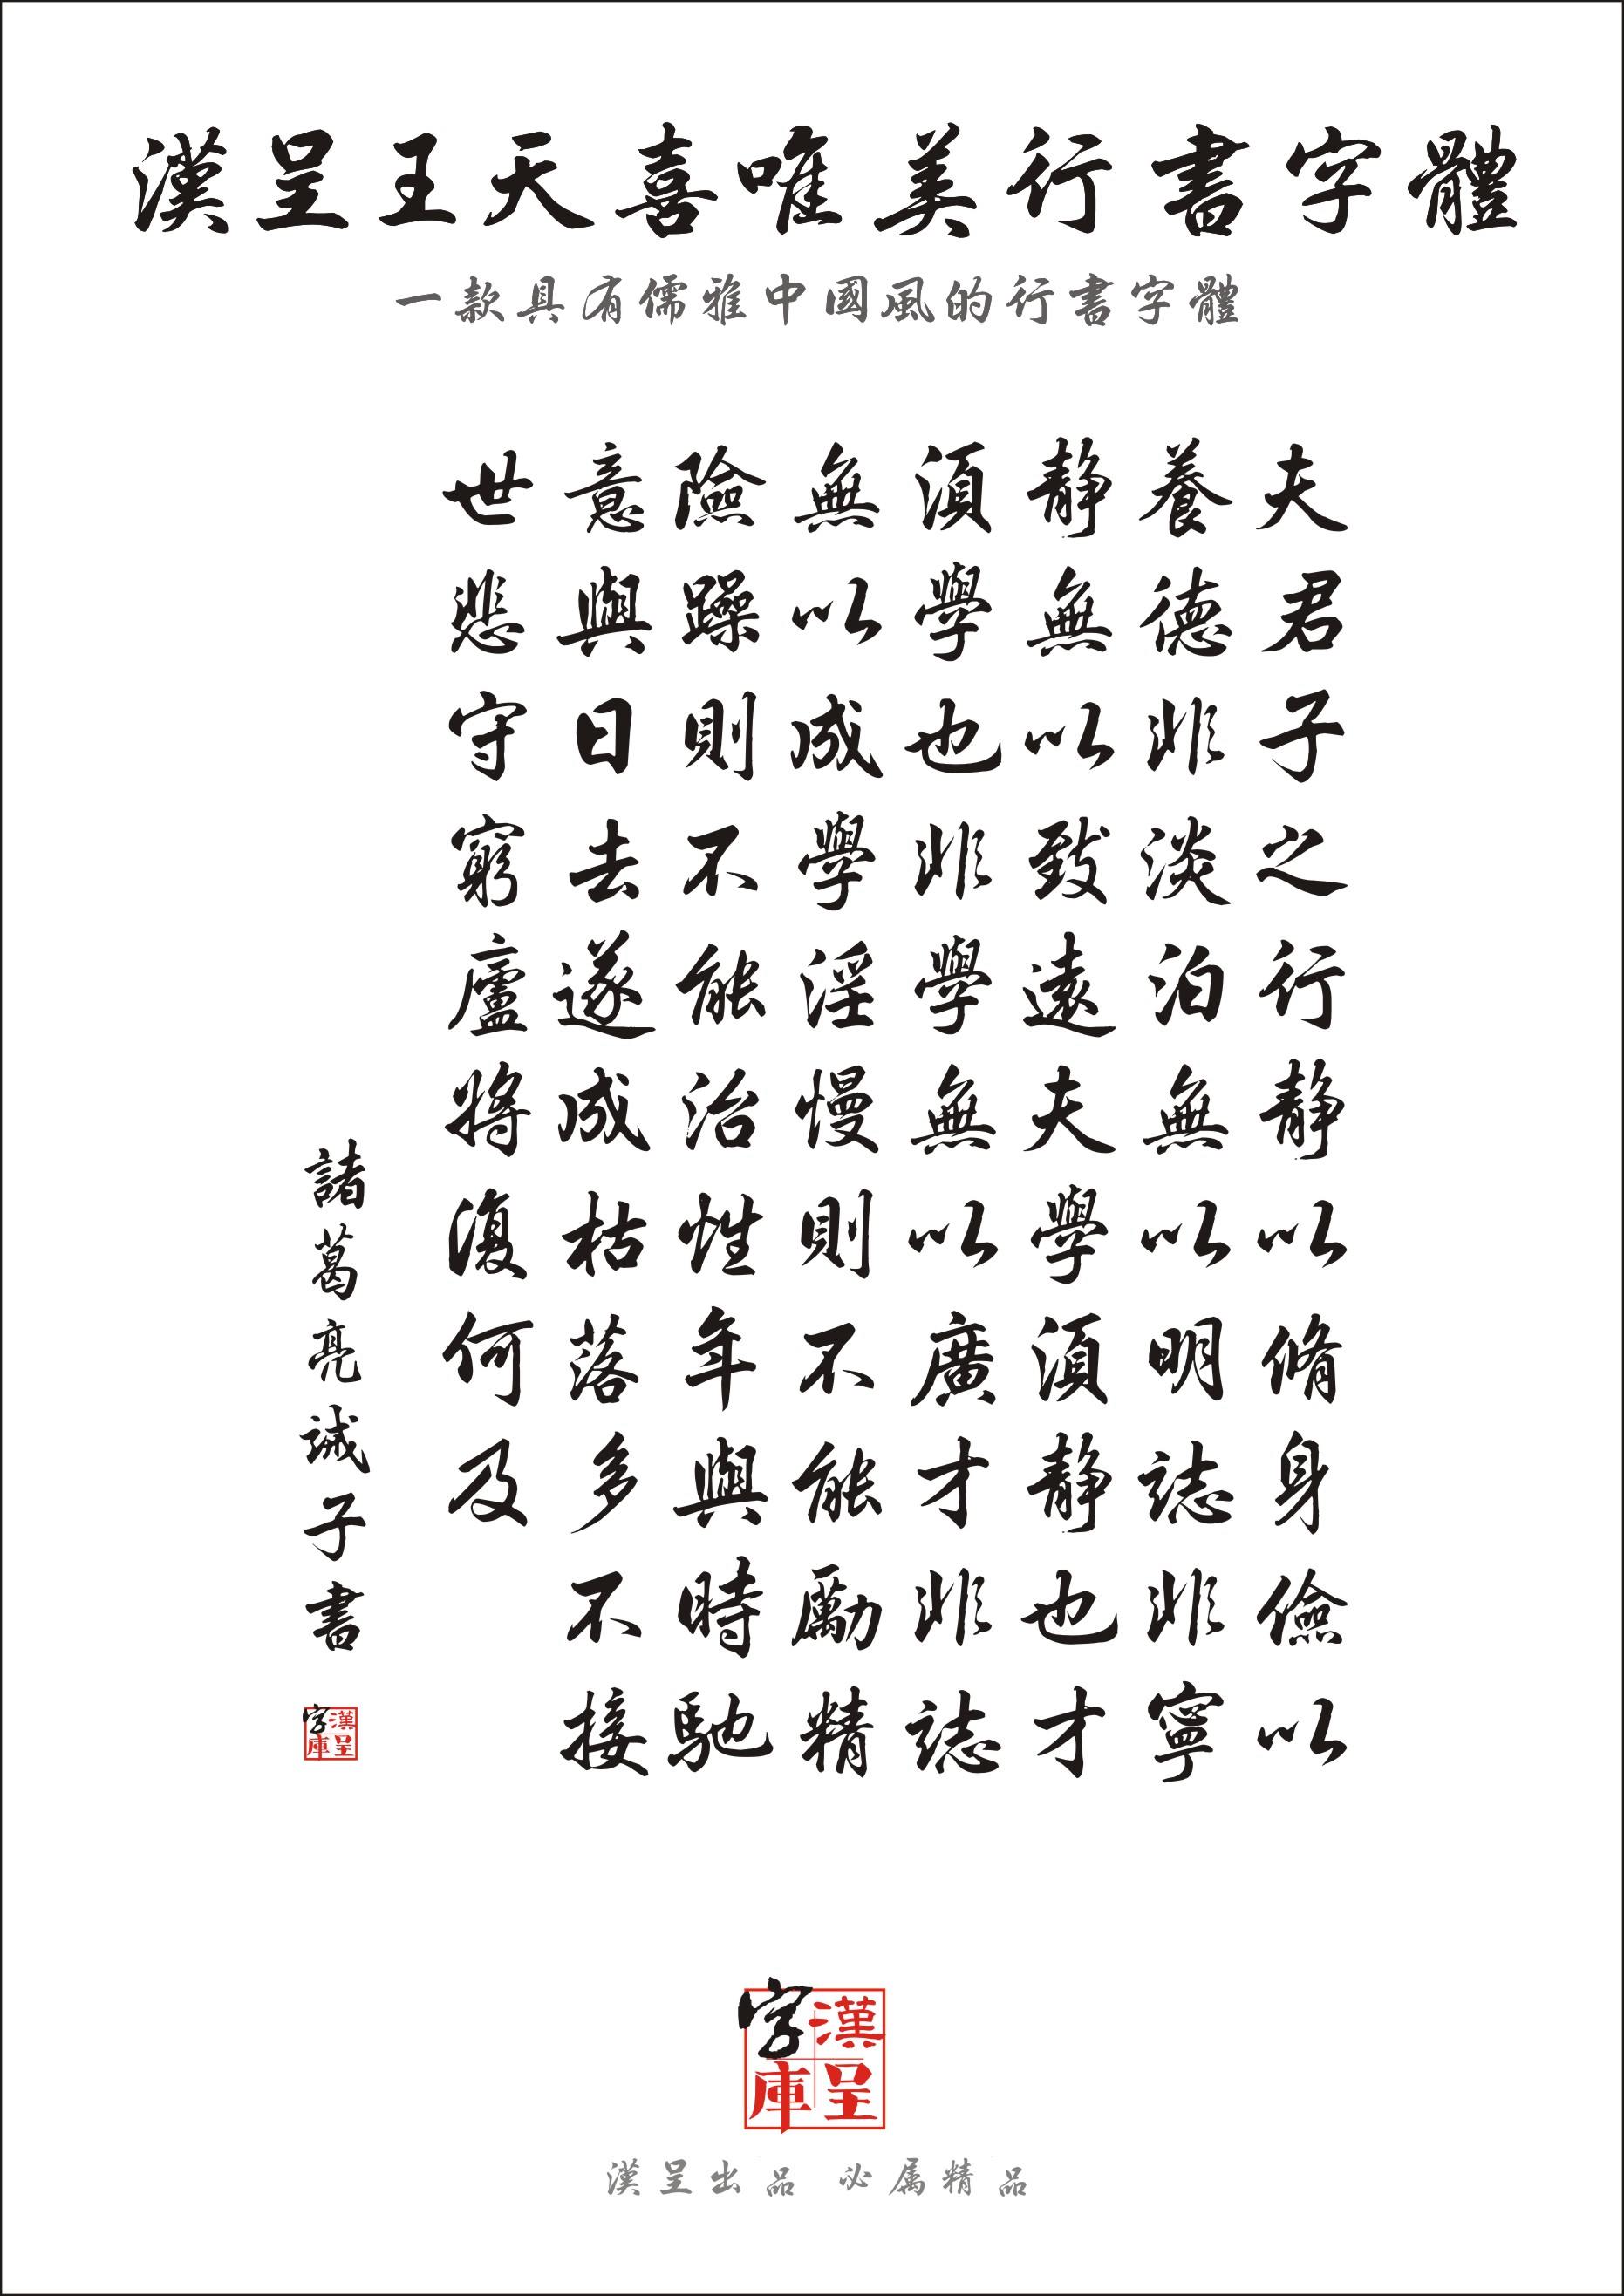 漢呈王天喜唯美行書字體
一款具有儒雅中國風的行書字體
夫君子之行静以脩身儉以
養德非淡泊無以明誌非寧
静無以致遠夫學須静也才
須學也非學無以廣才非誌
無以成學淫慢則不能勵精
險躁則不能治性年與時馳
意與日去遂成枯落多不接
世悲守窮廬將復何及
諸葛亮誡子書
漢呈字庫
漢呈字庫
漢呈出品 必属精品